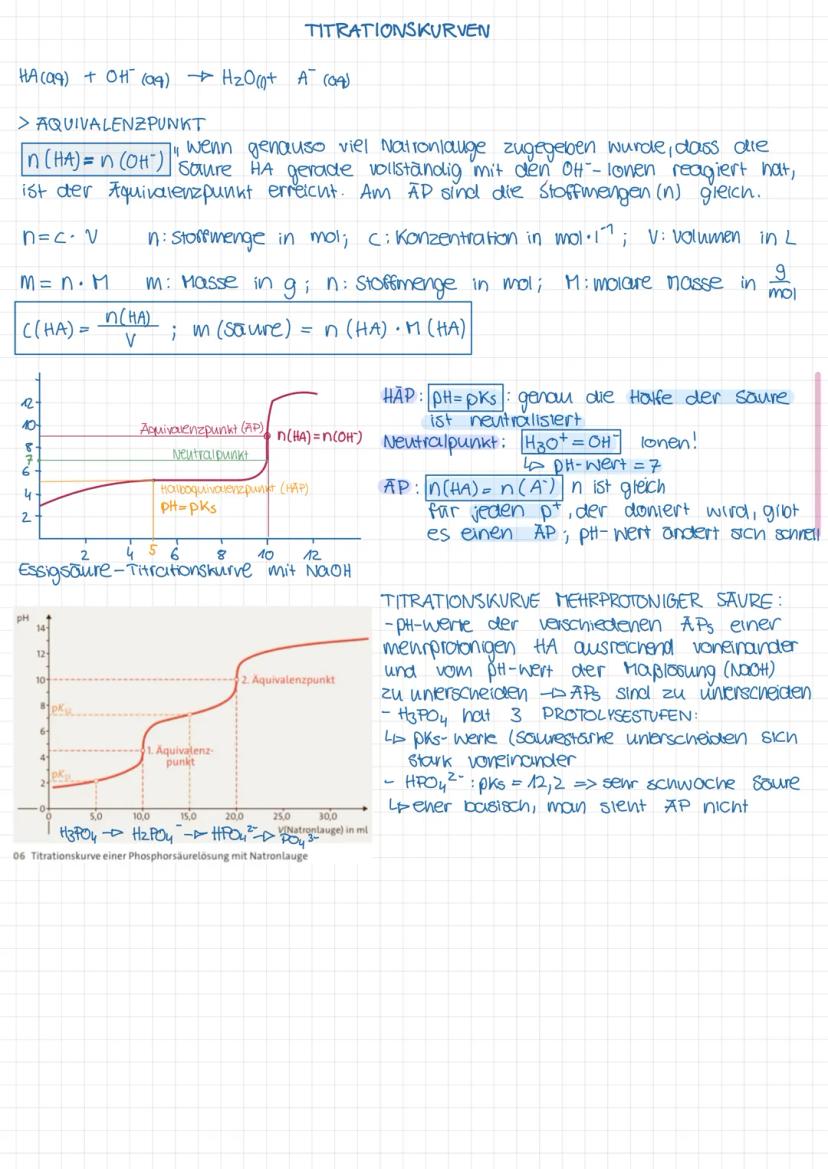 TITRATIONSKURVEN
HA(aq) + OH⁻ (aq) → H₂O(l) + A⁻ (aq)
> ÄQUIVALENZPUNKT
n(HA) = n(OH⁻) " Wenn genauso viel Natronlauge zugegeben wurde, dass die
Säure HA gerade vollständig mit den OH⁻-Ionen reagiert hat,
ist der Äquivalenzpunkt erreicht. Am ÄP sind die Stoffmengen (n) gleich.
n = c · V n: Stoffmenge in mol; c: Konzentration in mol · l⁻¹ ; V: Volumen in L
m = n · M m: Masse in g ; n: Stoffmenge in mol; M: molare Masse in g/mol
c(HA) = n(HA)/V ; m (Säure) = n (HA) · M (HA)
12
10
8
7
6
4
2
Äquivalenzpunkt (ÄP)
n(HA) = n(OH⁻)
Neutralpunkt
Halbäquivalenzpunkt (HÄP)
pH = pKs
2 4 5 6 8 10 12
Essigsäure-Titrationskurve mit NaOH
HÄP: pH = pKs : genau die Hälfe der Säure
ist neutralisiert
Neutralpunkt: H₃O⁺ = OH⁻ Ionen!
↳ pH-Wert = 7
ÄP: n(HA) = n(A⁻) n ist gleich
für jeden p⁺, der doniert wird, gibt
es einen ÄP ; pH-Wert ändert sich schnell
pH
14
12
10
8
6
4
2
0
2. Äquivalenzpunkt
pKS2
1. Äquivalenz-
punkt
pKS1
0 5,0 10,0 15,0 20,0 30,0
V(Natronlauge) in ml
H₃PO₄ → H₂PO₄⁻ → HPO₄²⁻ → PO₄³⁻
06 Titrationskurve einer Phosphorsäurelösung mit Natronlauge
TITRATIONSKURVE MEHRPROTONIGER SÄURE:
- pH-Werte der verschiedenen ÄPs einer
mehrprotonigen HA ausreichend voneinander
und vom pH-Wert der Maßlösung (NaOH)
zu unterscheiden → ÄPs sind zu unterscheiden
- H₃PO₄ hat 3 PROTOLYSESTUFEN:
↳ pKs-Werte (Säurestärke unterscheiden sich
stark voneinander
- HPO₄²⁻ : pKs = 12,2 => sehr schwache Säure
↳ eher basisch, man sieht ÄP nicht